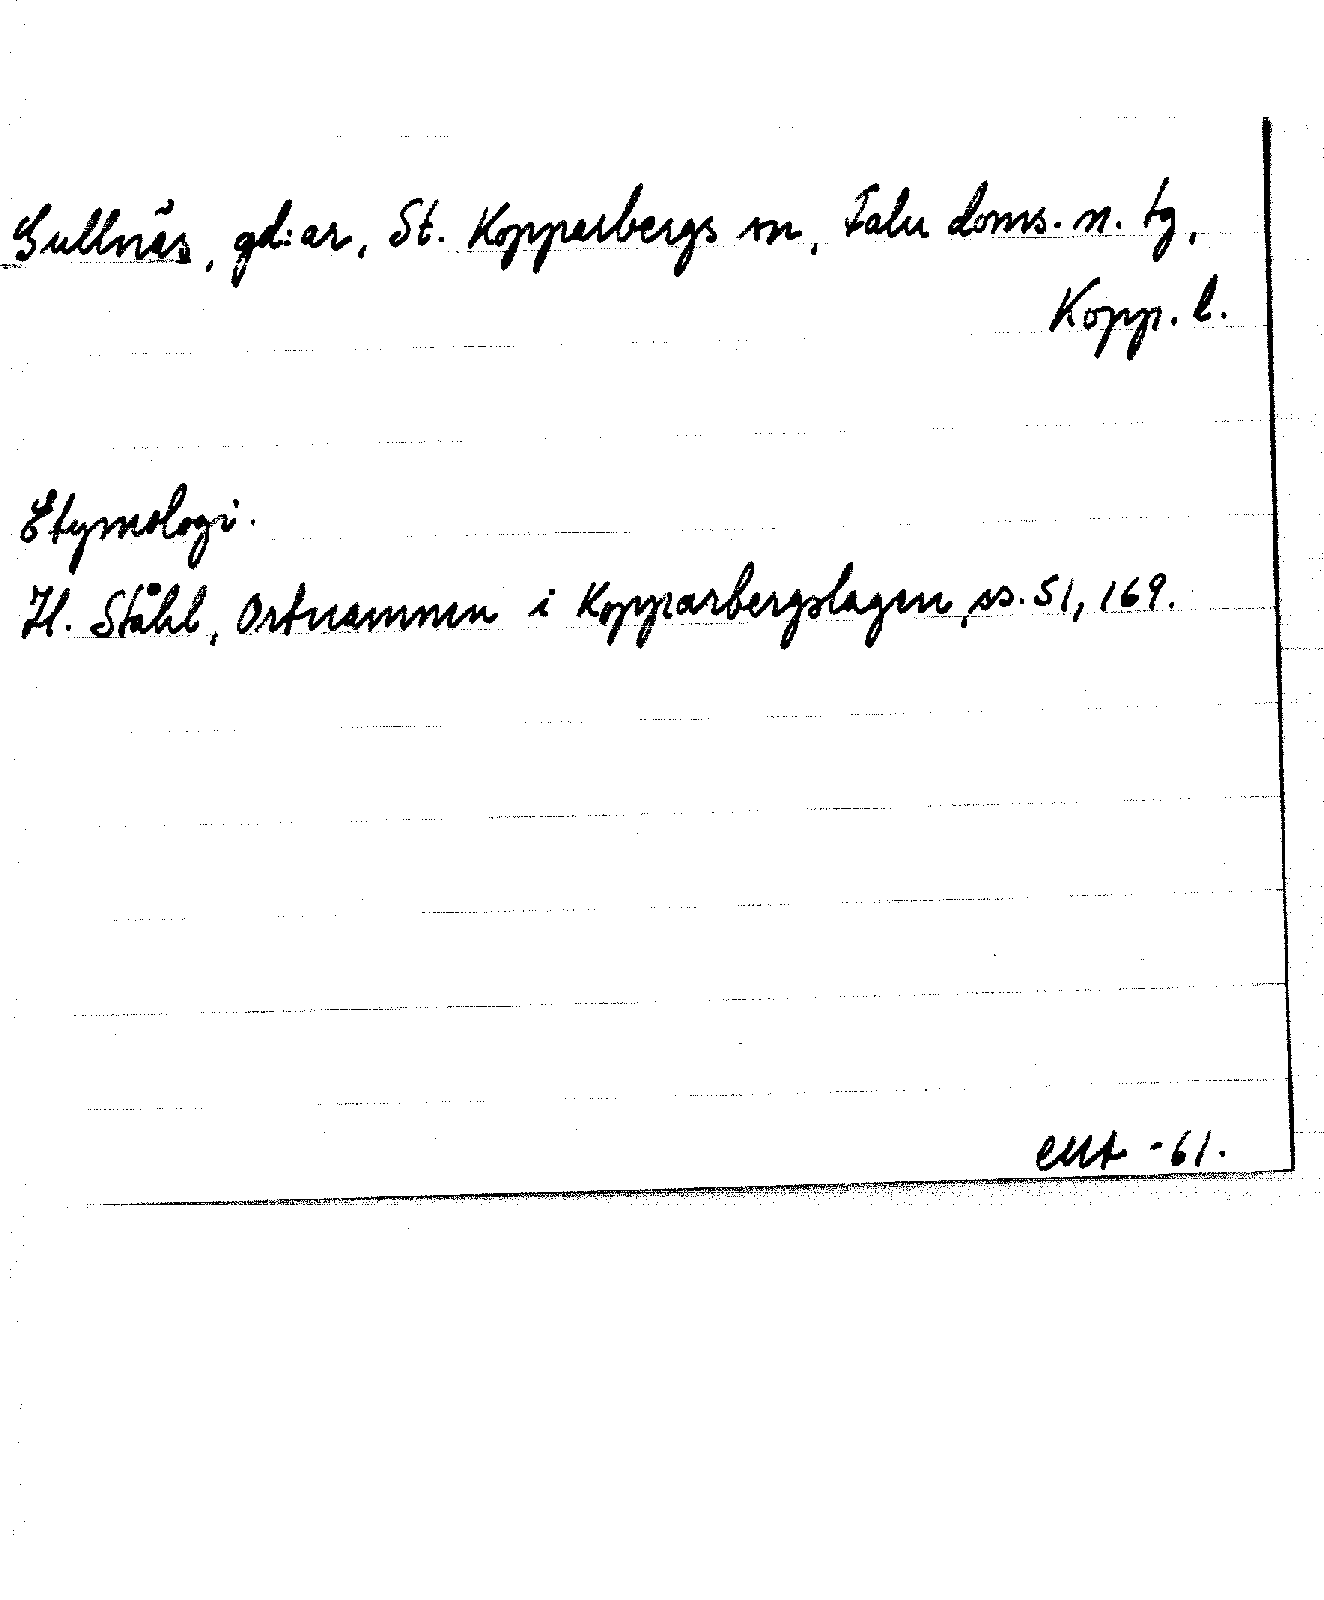 Gullnäs, gd:ar, St. Kopparbergs sn, Falu doms. n. tg,
Kopp. l.
Etymologi.
H. Ståhl, Ortnamnen i Kopparbergslagen, ss. 51, 169.
-61.